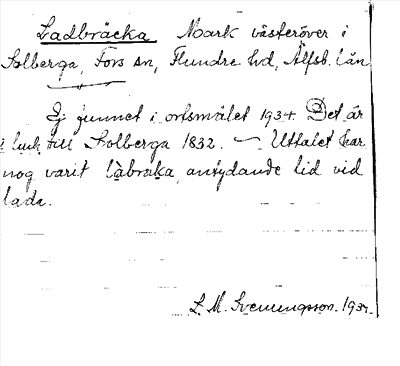 Ladbräcka Mark västeröver i
Solberga, Fors sn, Flundre hd, Älfsb. län
Ej funnet i ortsmålet 1934. Det är
till Solberga 1832. — Uttalet har
nog varit làbräka, antydande lid vid
lada.
L. M. Svenungsson. 1934.